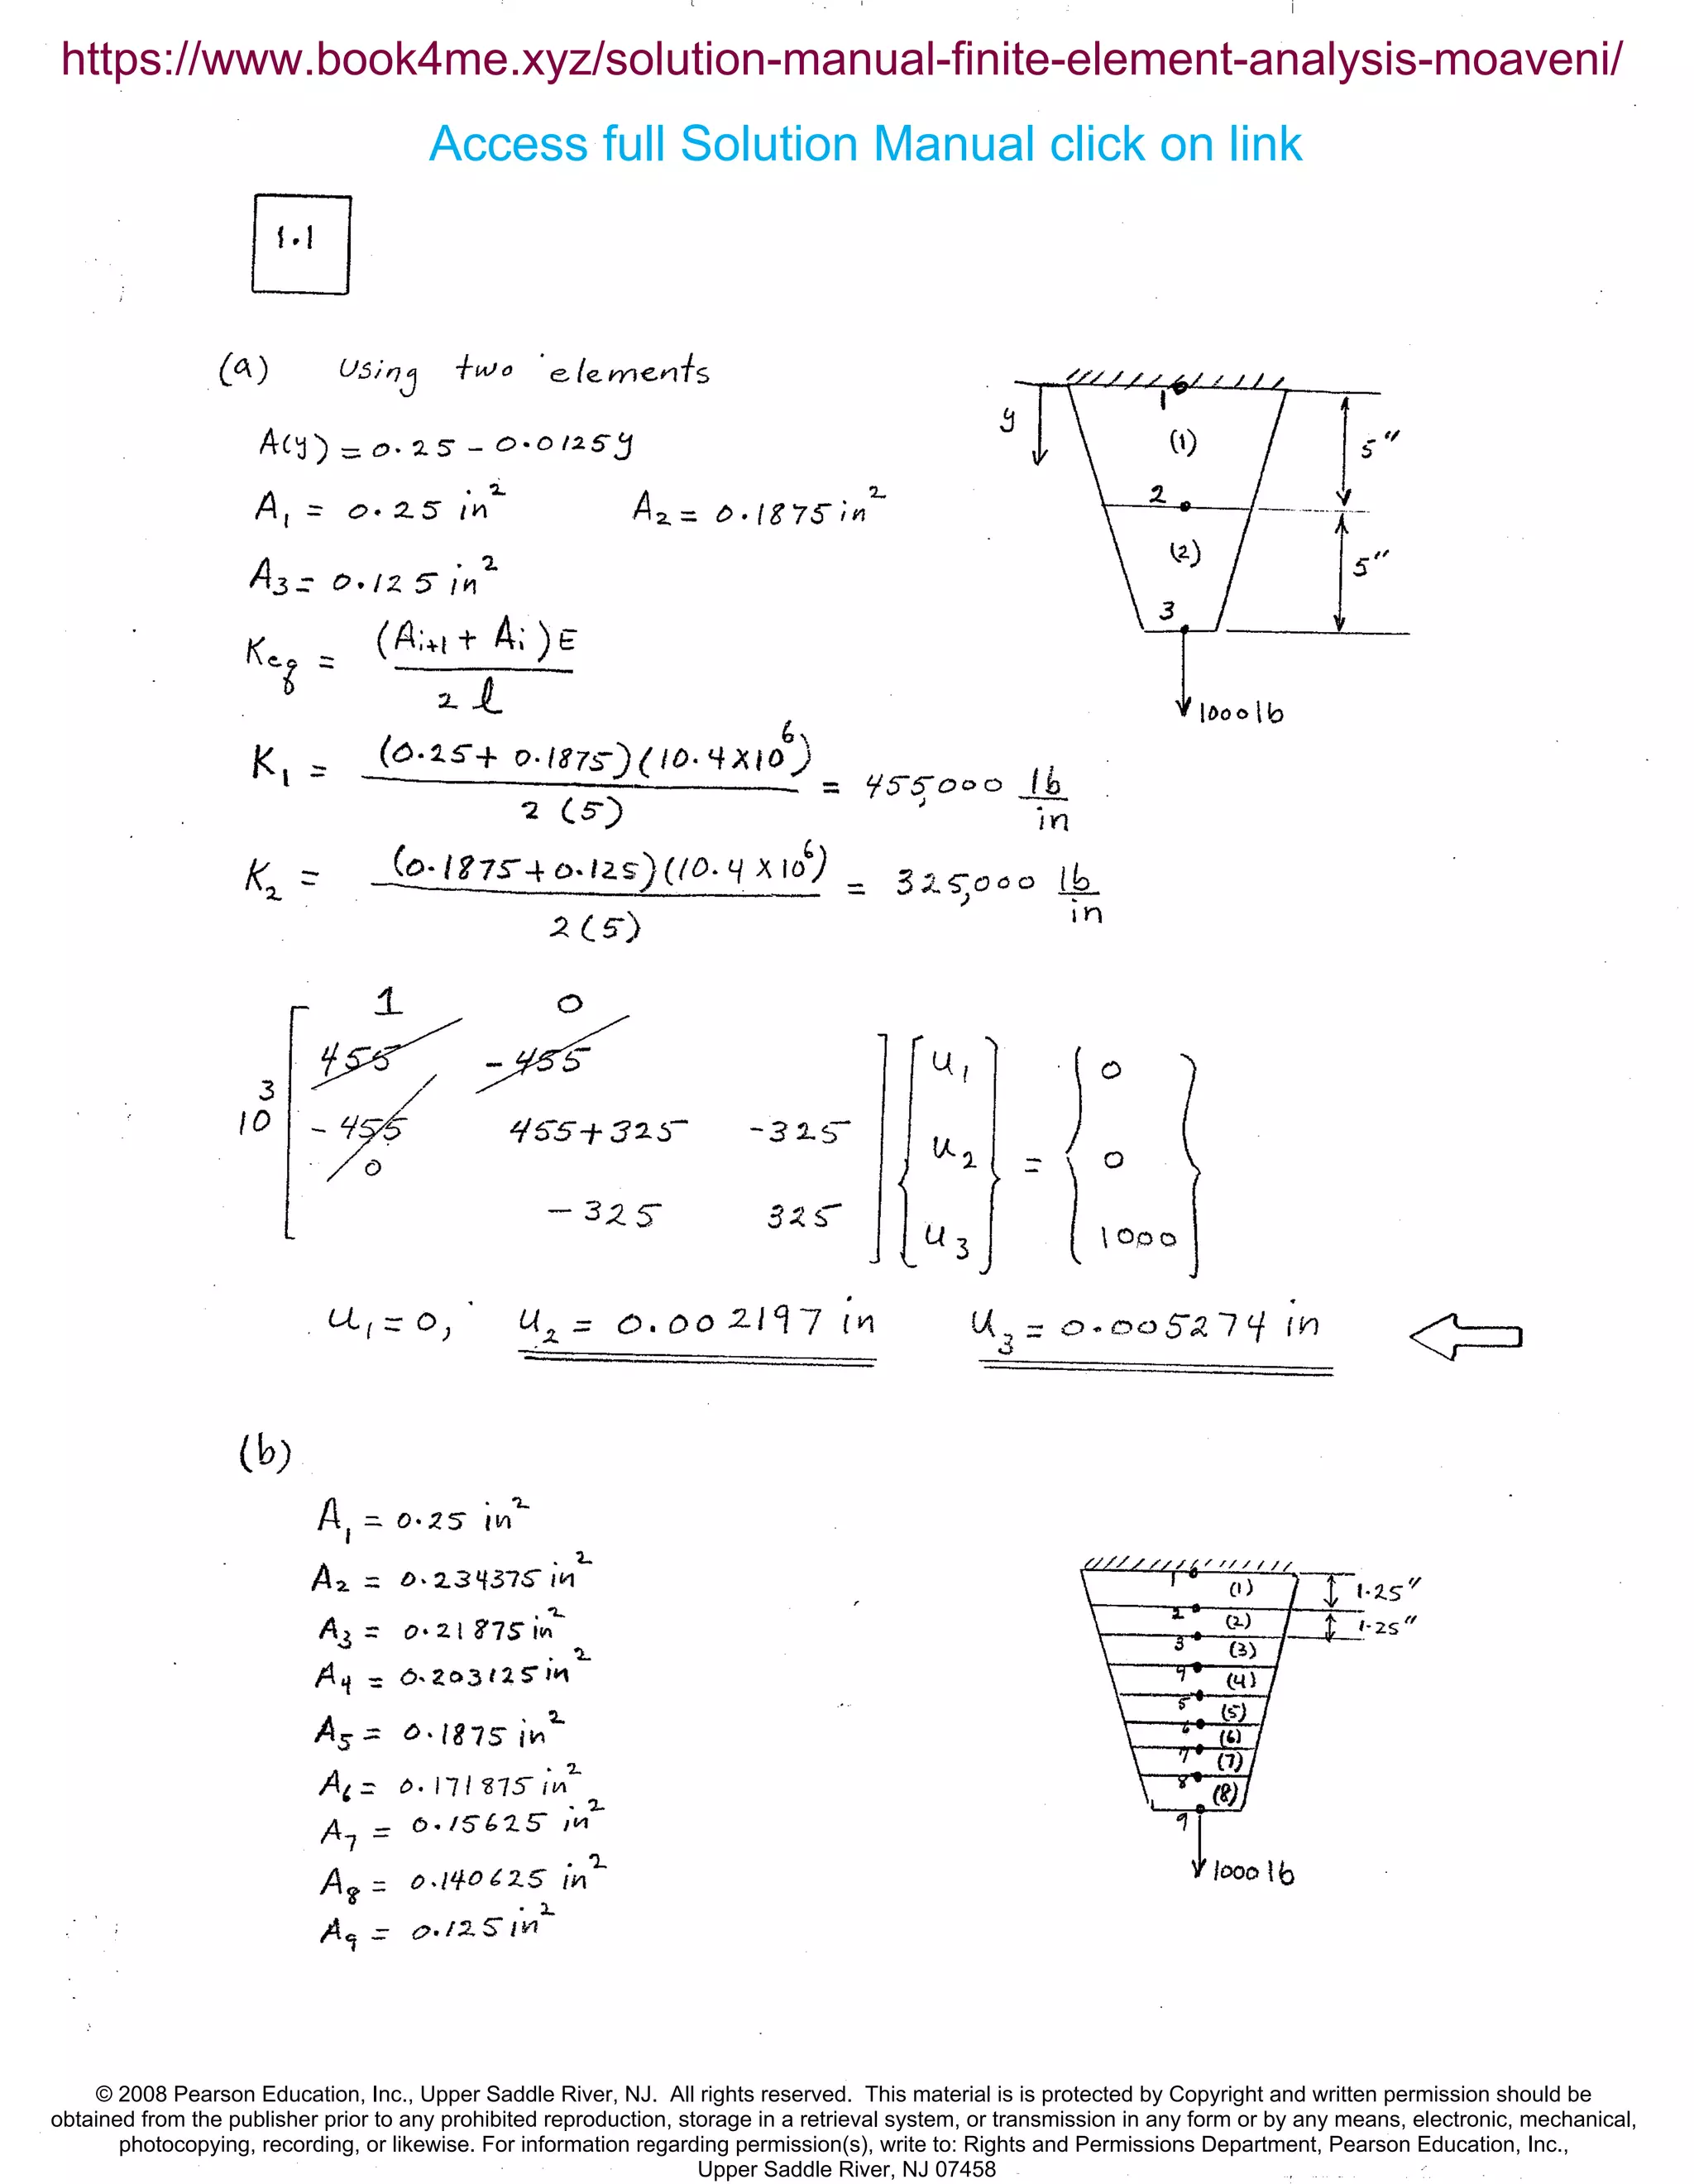 https://www.book4me.xyz/solution-manual-finite-element-analysis-moaveni/
Access full Solution Manual click on link
1.1
(a) Using two elements
A(y) = 0.25 - 0.0125y
A₁ = 0.25 in² A₂ = 0.1875 in²
A₃ = 0.125 in²
Keq = (Ai+1 + Ai)E / 2l
K₁ = (0.25 + 0.1875)(10.4×10⁶) / 2(5) = 455,000 lb/in
K₂ = (0.1875 + 0.125)(10.4×10⁶) / 2(5) = 325,000 lb/in
y
1
(1)
5"
2
(2)
5"
3
1000 lb
1 0
455 -455 u₁ 0
10³ -455 455+325 -325 u₂ = 0
0
-325 325 u₃ 1000
u₁ = 0, u₂ = 0.002197 in u₃ = 0.005274 in
(b)
A₁ = 0.25 in²
A₂ = 0.234375 in²
A₃ = 0.21875 in²
A₄ = 0.203125 in²
A₅ = 0.1875 in²
A₆ = 0.171875 in²
A₇ = 0.15625 in²
A₈ = 0.140625 in²
A₉ = 0.125 in²
1 (1) 1.25"
2 (2) 1.25"
3 (3)
4 (4)
5 (5)
6 (6)
7 (7)
8 (8)
9
1000 lb
© 2008 Pearson Education, Inc., Upper Saddle River, NJ. All rights reserved. This material is is protected by Copyright and written permission should be
obtained from the publisher prior to any prohibited reproduction, storage in a retrieval system, or transmission in any form or by any means, electronic, mechanical,
photocopying, recording, or likewise. For information regarding permission(s), write to: Rights and Permissions Department, Pearson Education, Inc.,
Upper Saddle River, NJ 07458